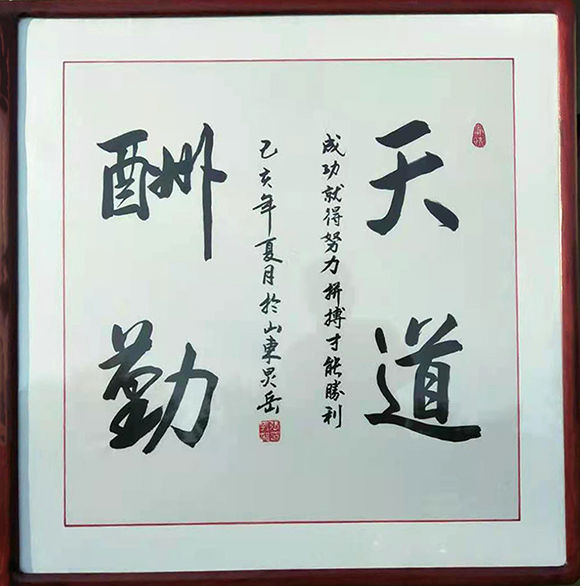 天道
成功就得努力拼搏才能勝利
乙亥年夏月於山東昊岳
酬勤